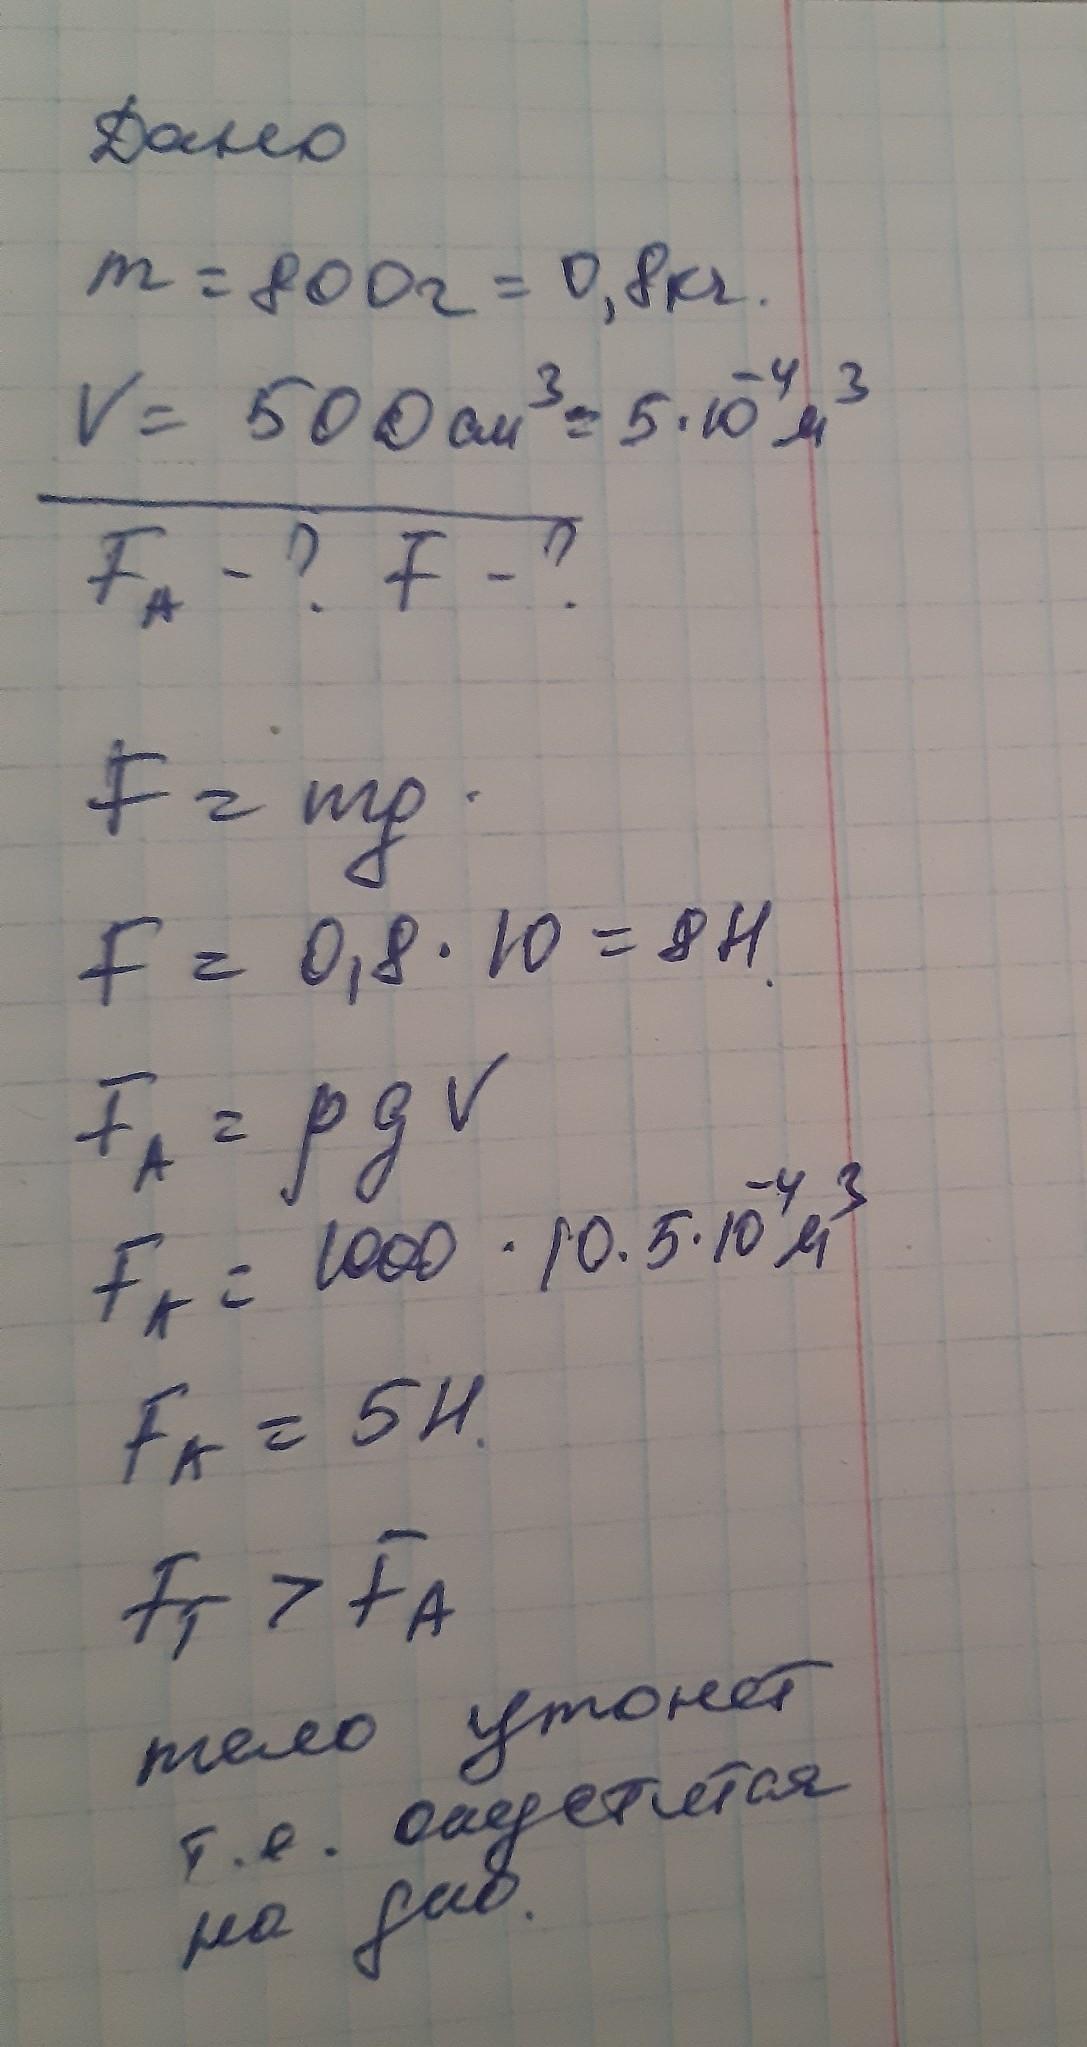 Дано
m = 800г = 0,8кг.
V = 500см³ = 5·10⁻⁴м³
F_A - ? F - ?
F = mg.
F = 0,8·10 = 8Н.
F_A = ρgV
F_A = 1000·10·5·10⁻⁴м³
F_A = 5Н.
F_T > F_A
тело утонет
т.е. опустится
на дно.